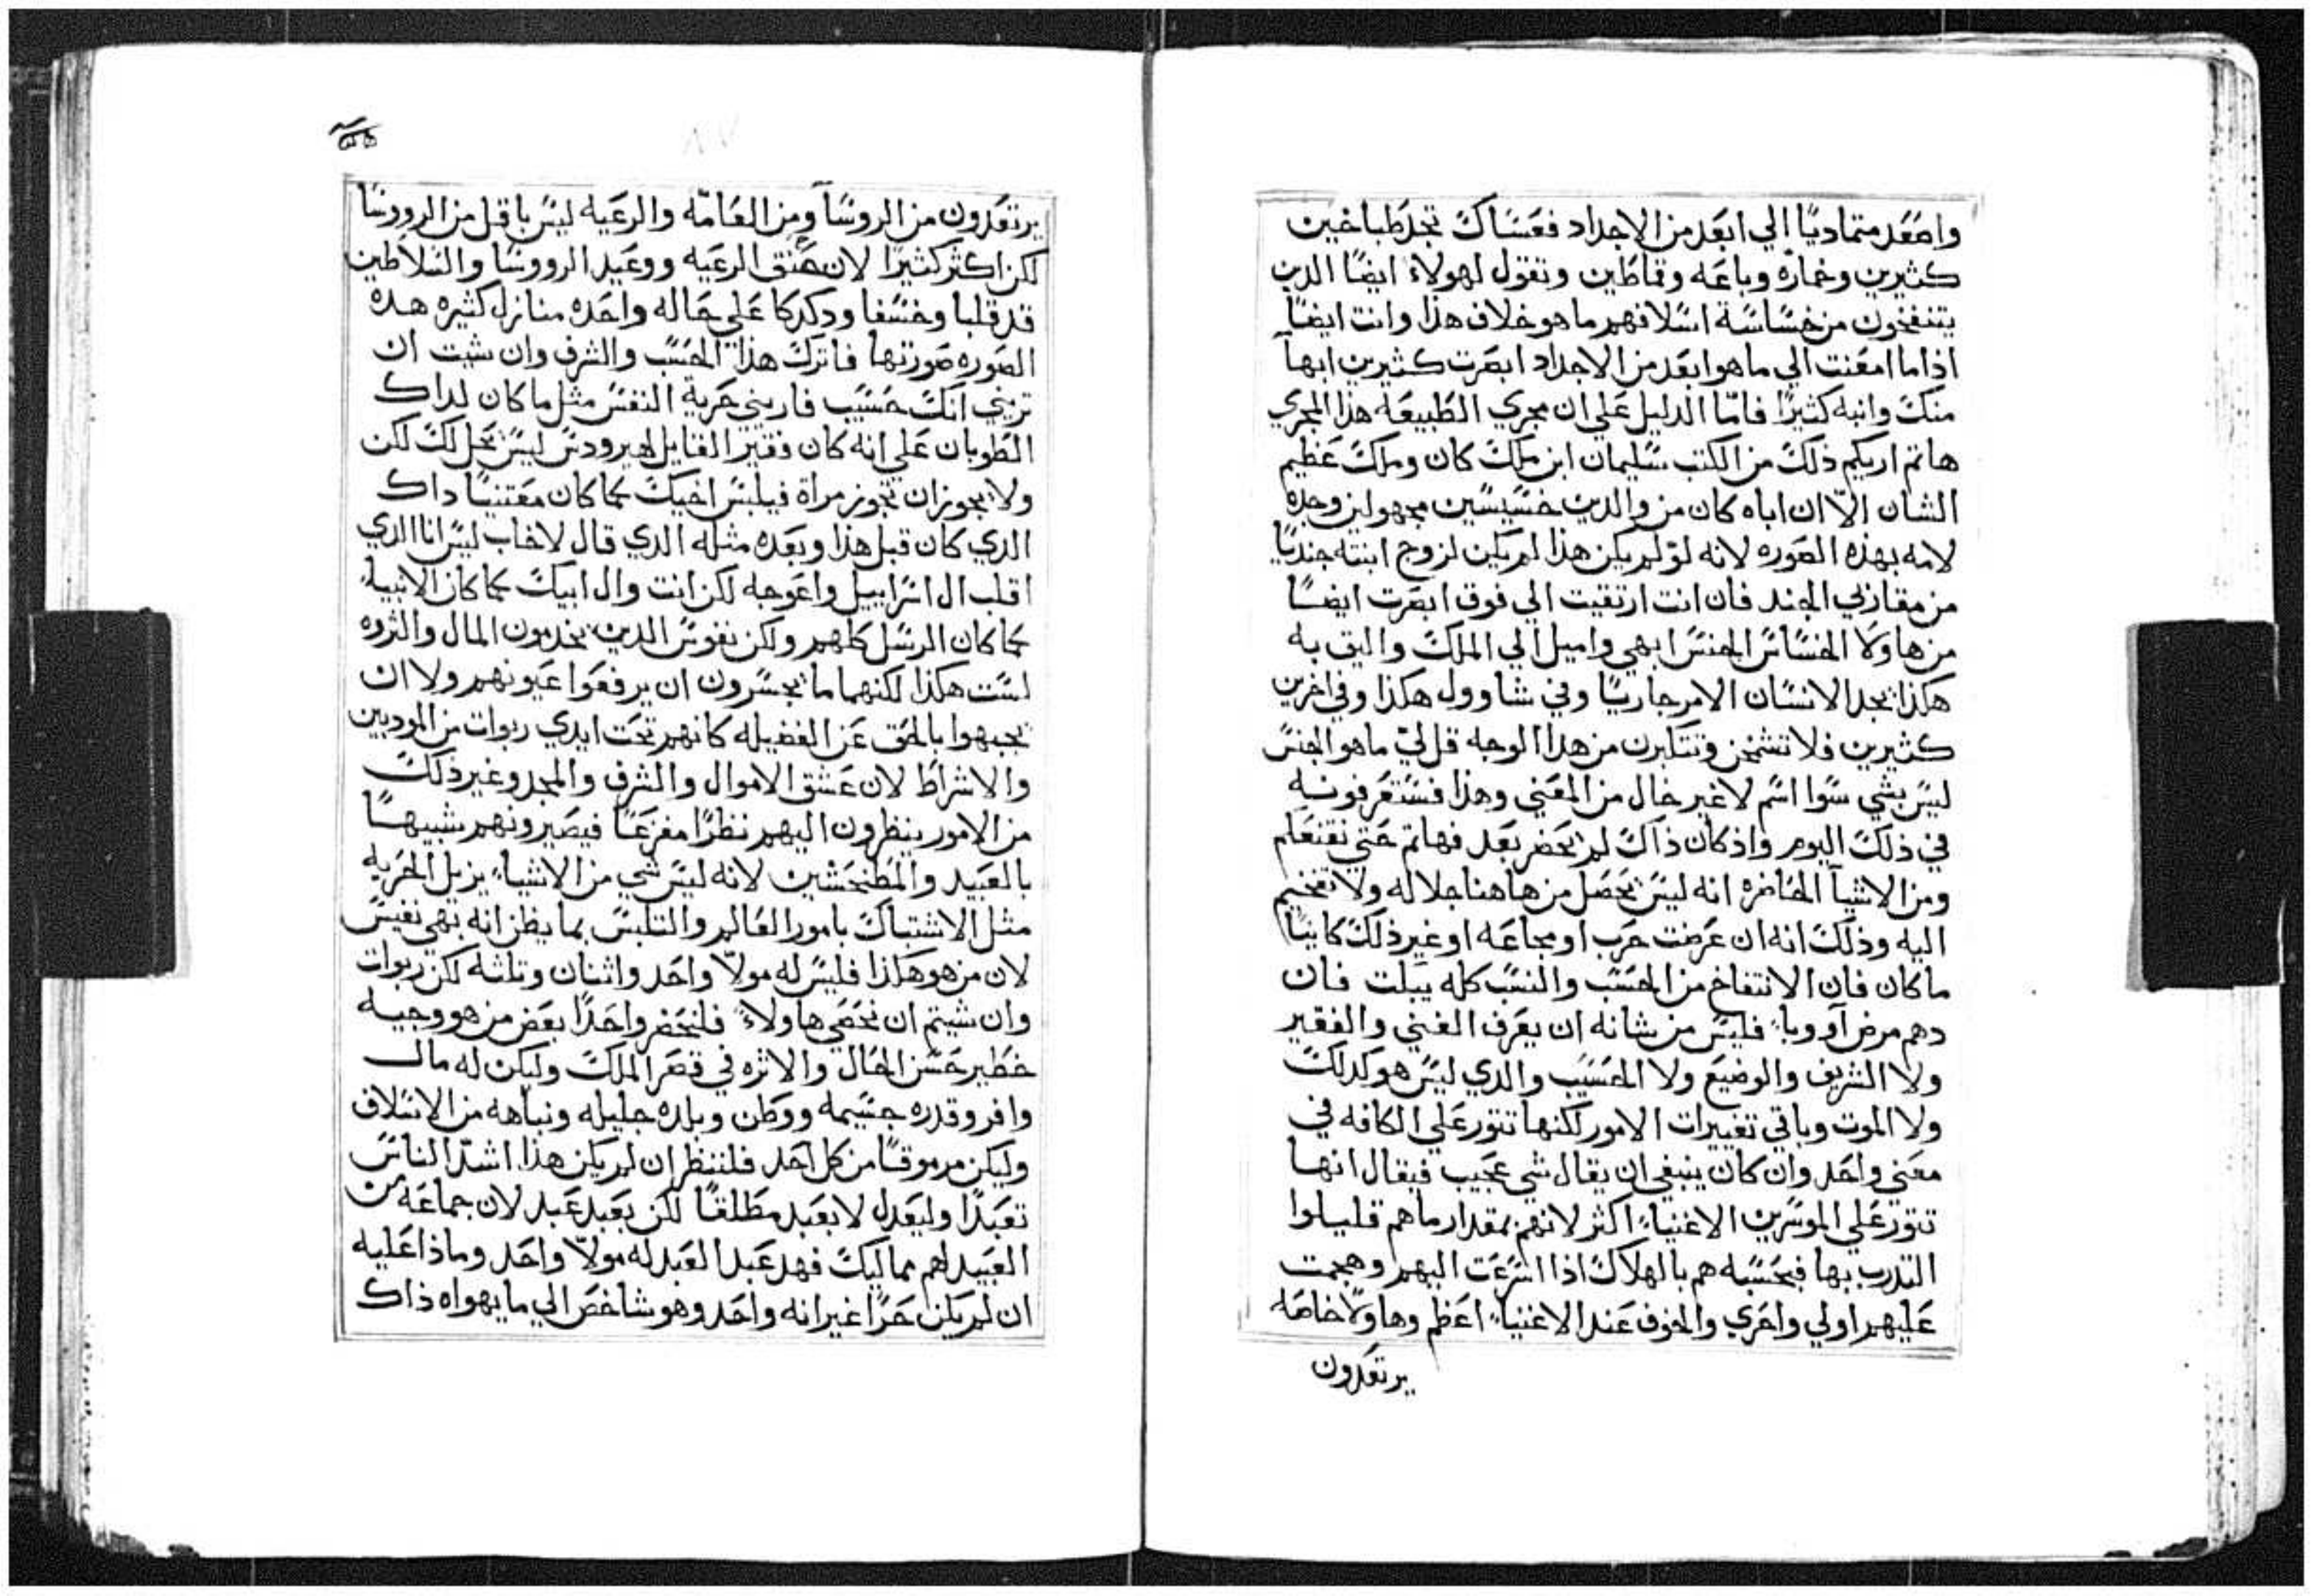 واصعد متماديًا الي ابعد من الاجداد فعساك تجد طباخين
كثيرين وخمارّه وباعه وقماطين وتقول لهولاء ايضًا الدين
يتنفخون من خساسة اسلافهم ما هو خلاف هذا وانت ايضًا
اذا ما امعنت الي ما هو ابعد من الاجداد ابصرت كثيرين ابهآ
منك وانبه كثيرًا فامّا الدليل علي ان مجري الطبيعه هذا المجري
هاتم اريكم ذلك من الكتب سليمان ابن ملك كان وملك عظيم
الشان الاّ ان اباه كان من والدين خسيسين مجهولين وجده
لامه بهذه الصوره لانه لو لم يكن هذا لم يكن لزوج ابنته جنديًا
من الجند فان انت ارتقيت الي فوق ابصرت ايضًا
من هاولا الخساس الجنس ابهي واميل الي الملك واليق به
هكذا يجد الانسان الامر جاريًا وفي شاوول هكذا وفي اخرين
كثيرين فلا تشمخن وتتكبرن من هدا الوجه قل ليّ ما هو الجنس
ليس بشي سوا اسم لا غير خال من المعني وهذا فستعرفونه
في ذلك اليوم واذ كان ذاك لم يحضر بعد فهاتم حتي نقنعكم
ومن الاشيآ الحاضره انه ليس يحصل من هاهنا جلاله ولا تفخيم
اليه وذلك انه ان عرضت حرب او مجاعه او غير ذلك كاينًا
ما كان فان الانتفاخ من الحسب والنسب كله يبكت فان
دهم مرض آو وبا فليس من شانه ان يعرف الغني والفقير
ولا الشريف والوضيع ولا الحسيب والدي ليس هو كدلك
ولا الموت وباقي تغييرات الامور لكنها تتور علي الكافه في
معني واحد وان كان ينبغي ان يقال شي عجيب فيقال انها
تتور علي الموسرين الاغنياء اكثر لانهم بمقدار ما هم قليلوا
التدرب بها فبحسبه هم بالهلاك اذا اسرعت اليهم وهجمت
عليهم اولي واحري والخوف عند الاغنياء اعظم وهاولا خاصه
يرتعدون
يرتعدون من الروسآ ومن العامّه والرعيه ليس باقل من الرووسا
لكن اكثر كثيرًا لان حنق الرعيه ووعيد الرووسا والسلاطين
قد قلبا وخسفا ودكدكا علي حاله واحده منازل كثيره هده
الصوره صورتها فاترك هذا الحسب والشرف وان شيت ان
تريني انك حسيب فاريني حرية النفس مثل ما كان لداك
الطوبان علي انه كان فقيرًا القايل لهيرودس ليس يحل لك لكن
ولا يجوز ان تجوز مراة فيلبس اخيك كما كان مقتنيًا داك
الدي كان قبل هذا وبعده مثله الدي قال لاخاب ليس انا الدي
اقلب ال اسراييل واعوجه لكن انت وال ابيك كما كان الانبياء
كما كان الرسل كلهم ولكن نفوس الدين يخدمون المال والثروه
لست هكذا لكنهما ما يجسرون ان يرفعوا عيونهم ولا ان
يجبهوا بالحق عن الفضيله كانهم تحت ايدي ربوات من الموديين
والاشراط لان عشق الاموال والشرف والمجد وغير ذلك
من الامور ينظرون اليهم نظرًا مفزعًا فيصيرونهم شبيهًا
بالعبيد لانه ليس شي من الاشياء يزيل الحريه
مثل الاشتباك بامور العالم والتلبس بما يظن انه بهي نفيس
لان من هو هكذا فليس له مولا واحد واثنان وتلثه لكن ربوات
وان شيتم ان نحصي هاولاء فلنحضر واحدًا بعض من هو وجيه
خطير حسن الحال والاثره في قصر الملك وليكن له مال
وافر وقدره جسيمه ووطن وبلده جليله ونباهه من الاسلاف
وليكن مرموقًا من كل احد فلننظر ان لم يكن هذا اشدّ الناس
تعبدًا وليعدل لا بعبد مطلقًا لكن بعبد عبد لان جماعه من
العبيد لهم مماليك فهد عبد العبد له مولا واحد وماذا عليه
ان لم يكن حرًا غير انه واحد وهو شاخص الي ما يهواه ذاك